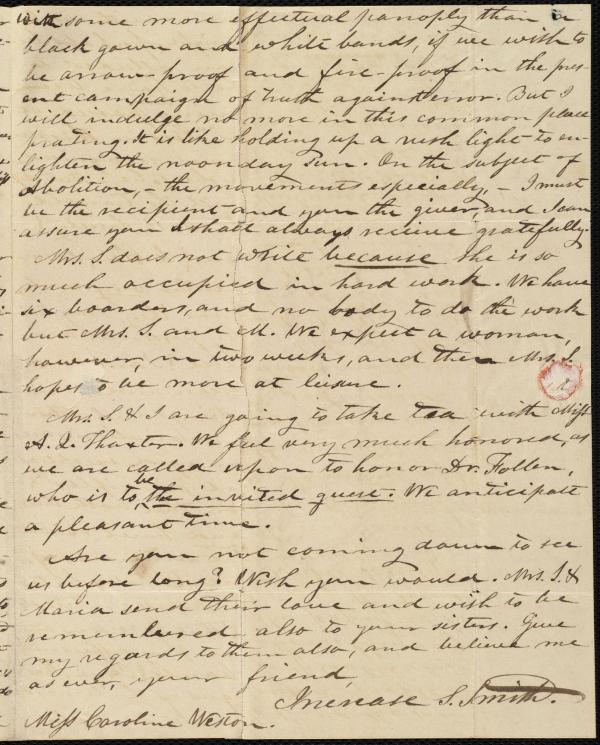 with some more effectual panoply than a
black gown and white bands, if we wish to
be arrow-proof and fire-proof in the pres-
ent campaign of truth against error. But I
will indulge no more in this common place
prating. It is like holding up a rush light to en-
lighten the noonday sun. On the subject of
Abolition, - the movements especially, - I must
be the recipient and you the giver, and I can
assure you I shall always receive gratefully.
Mrs. S. does not write because she is so
much occupied in hard work. We have
six boarders, and no body to do the work
but Mrs. S. and M. We expect a woman,
however, in two weeks, and then Mrs. S.
hopes to be more at leisure.
Mrs. S. & I are going to take tea with Miss
A. Q. Thaxter. We feel very much honored, as
we are called upon to honor Dr. Follen,
who is to be the invited guest. We anticipate
a pleasant time.
Are you not coming down to see
us before long? Wish you would. Mrs. S. &
Maria send their love and wish to be
remembered also to your sisters. Give
my regards to them also, and believe me
as ever, your friend,
Increase S. Smith.
Miss Caroline Weston.